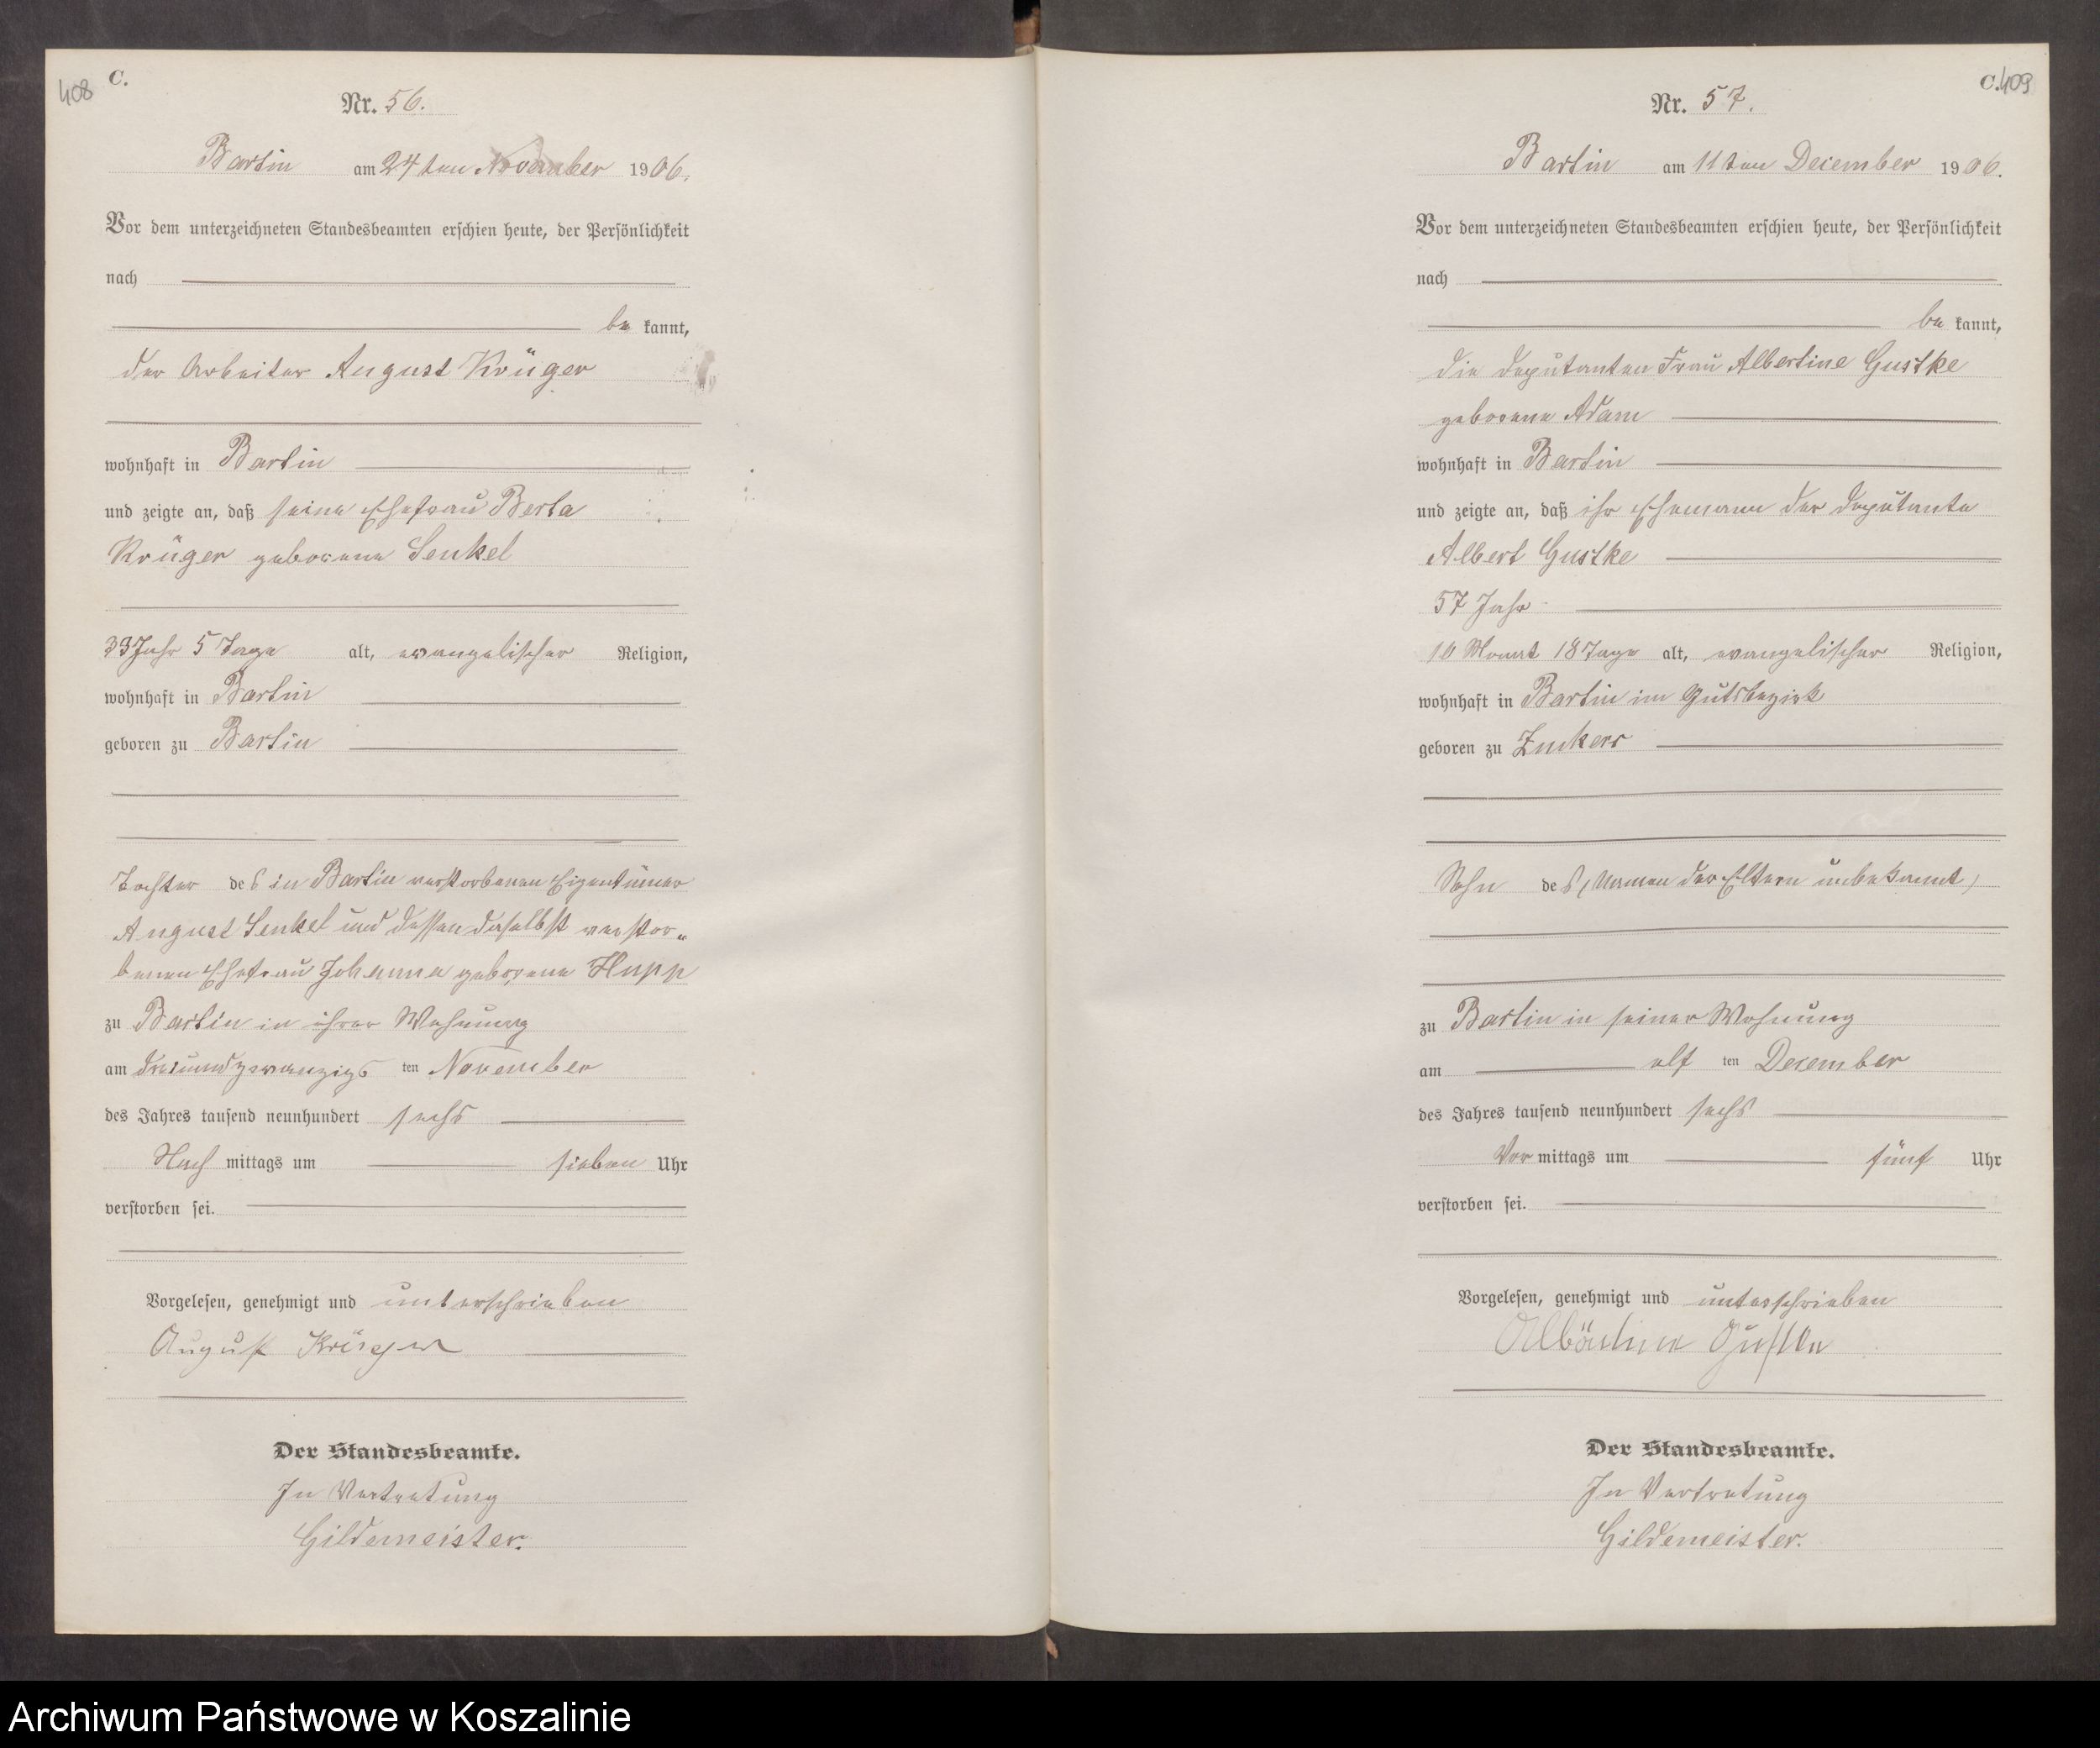 408
C.
Nr. 56.
Bartin am 24ten November 1906.
Vor dem unterzeichneten Standesbeamten erschien heute, der Persönlichkeit
nach
be kannt,
der Arbeiter August Krüger
wohnhaft in Bartin
und zeigte an, daß seine Ehefrau Berta
Krüger geborene Senkel
33 Jahr 5 Tage alt, evangelischer Religion,
wohnhaft in Bartin
geboren zu Bartin
Tochter des in Bartin verstorbenen Eigentümer
August Senkel und dessen daselbst verstor„
benen Ehefrau Johanna geborene Hupp
zu Bartin in ihrer Wohnung
am dreiundzwanzigs ten November
des Jahres tausend neunhundert sechs
Nach mittags um sieben Uhr
verstorben sei.
Vorgelesen, genehmigt und unterschrieben
August Krüger
Der Standesbeamte.
In Vertretung
Gildemeister.
C. 409
Nr. 57.
Bartin am 11ten December 1906.
Vor dem unterzeichneten Standesbeamten erschien heute, der Persönlichkeit
nach
be kannt,
die Deputanten Frau Albertine Gustke
geborene Adam
wohnhaft in Bartin
und zeigte an, daß ihr Ehemann der Deputante
Albert Gustke
57 Jahr
10 Monat 18 Tage alt, evangelischer Religion,
wohnhaft in Bartin im Gutsbezirk
geboren zu Zukers
Sohn des (Namen der Eltern unbekannt)
zu Bartin in seiner Wohnung
am elf ten December
des Jahres tausend neunhundert sechs
Vor mittags um fünf Uhr
verstorben sei.
Vorgelesen, genehmigt und unterschrieben
Albertine Gustke
Der Standesbeamte.
In Vertretung
Gildemeister.
Archiwum Państwowe w Koszalinie